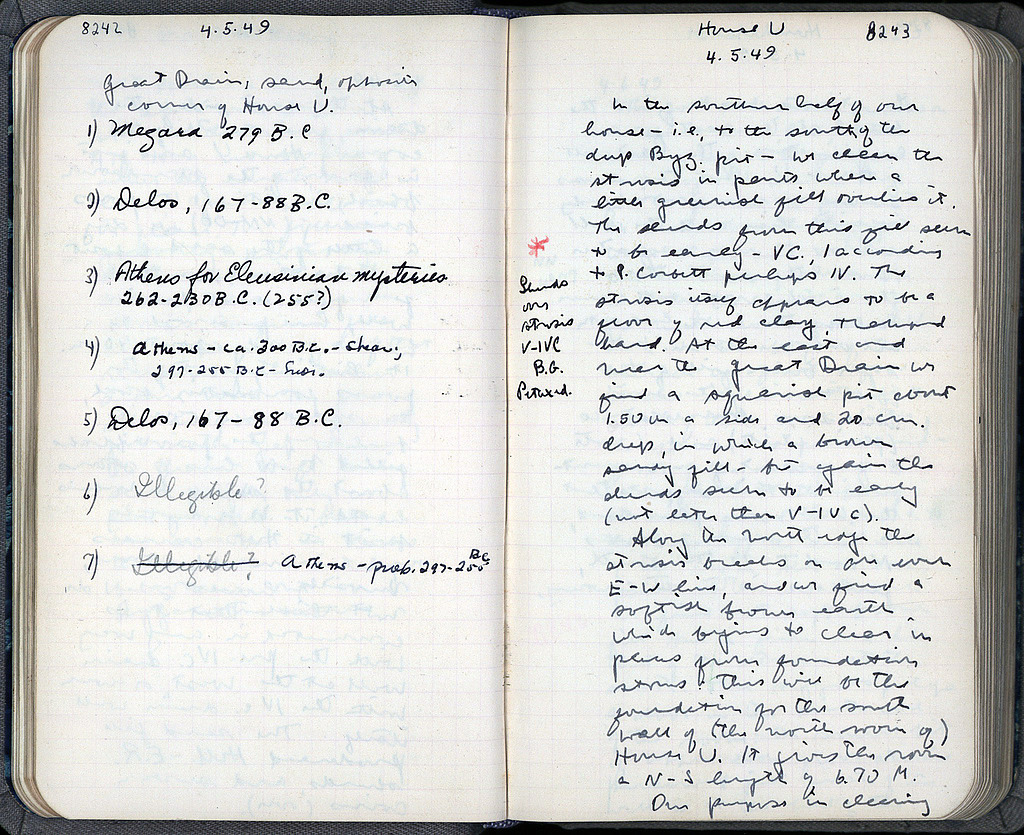 8242
4.5.49
Great Drain, sand, opposite
corner of House U.
1) Megara 279 B.C
2) Delos, 167-88 B.C.
3) Athens for Eleusinian mysteries
262-230 B.C. (255?)
4) Athens - ca. 300 B.C. - Shear,
297-255 B.C. - Svor.
5) Delos, 167-88 B.C.
6) Illegible?
7) Illegible? Athens - prob. 297-255 B.C.
House U
8243
4.5.49
In the southern half of our
house - i.e., to the south of the
deep Byz. pit - we clean the
strosis in parts where a
greenish fill overlies it.
The sherds from this fill seem
to be early - V C., according
to P. Corbett perhaps IV. The
strosis itself appears to be a
floor of red clay, trodden
hard. At the east end
near the Great Drain we
find a squarish pit about
1.50 m a side and 20 cm.
deep, in which a brown
sandy fill - but again the
sherds seem to be early
(not later than V-IV C).
Along the north edge the
strosis breaks on an even
E-W line, and we find a
softish brown earth
which begins to clear in
places from foundation
stones. This will be the
foundation for the south
wall of (the north room of)
House U. It gives the room
a N-S length of 6.70 M.
Our purpose in clearing
Sherds
over
strosis
V-IVC
B.G.